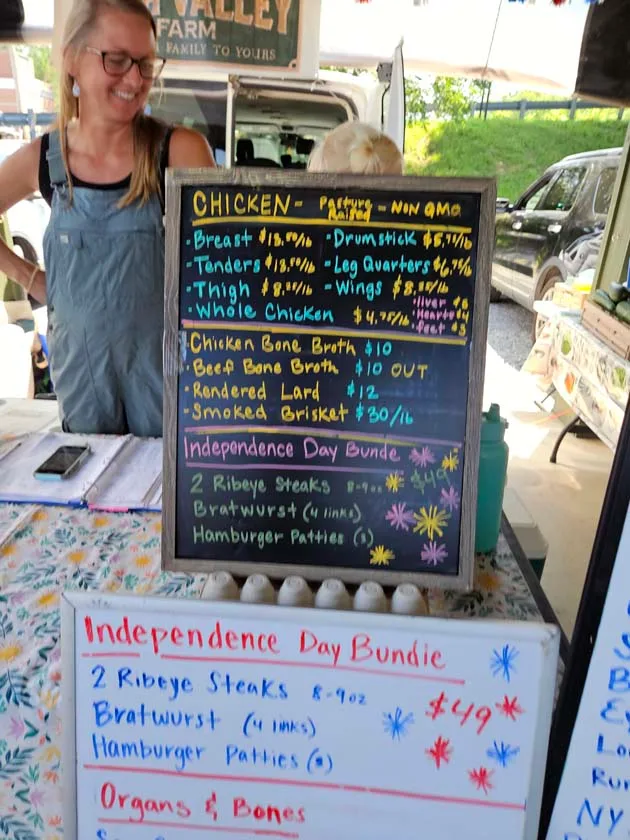 VALLEY
FARM
FAMILY TO YOURS
CHICKEN - Pasture Raised - NON GMO
- Breast $13.50/lb - Drumstick $5.75/lb
- Tenders $13.50/lb - Leg Quarters $6.75/lb
- Thigh $8.25/lb - Wings $8.25/lb
- Whole Chicken $4.75/lb
· liver $6
· Hearts $4
· feet $5
· Chicken Bone Broth $10
· Beef Bone Broth $10 OUT
- Rendered Lard $12
- Smoked Brisket $30/lb
Independence Day Bunde
$49
2 Ribeye Steaks 8-9oz
Bratwurst (4 links)
Hamburger Patties
Independence Day Bundle
2 Ribeye Steaks 8-9oz
$49
Bratwurst (4 links)
Hamburger Patties
Organs & Bones
NY